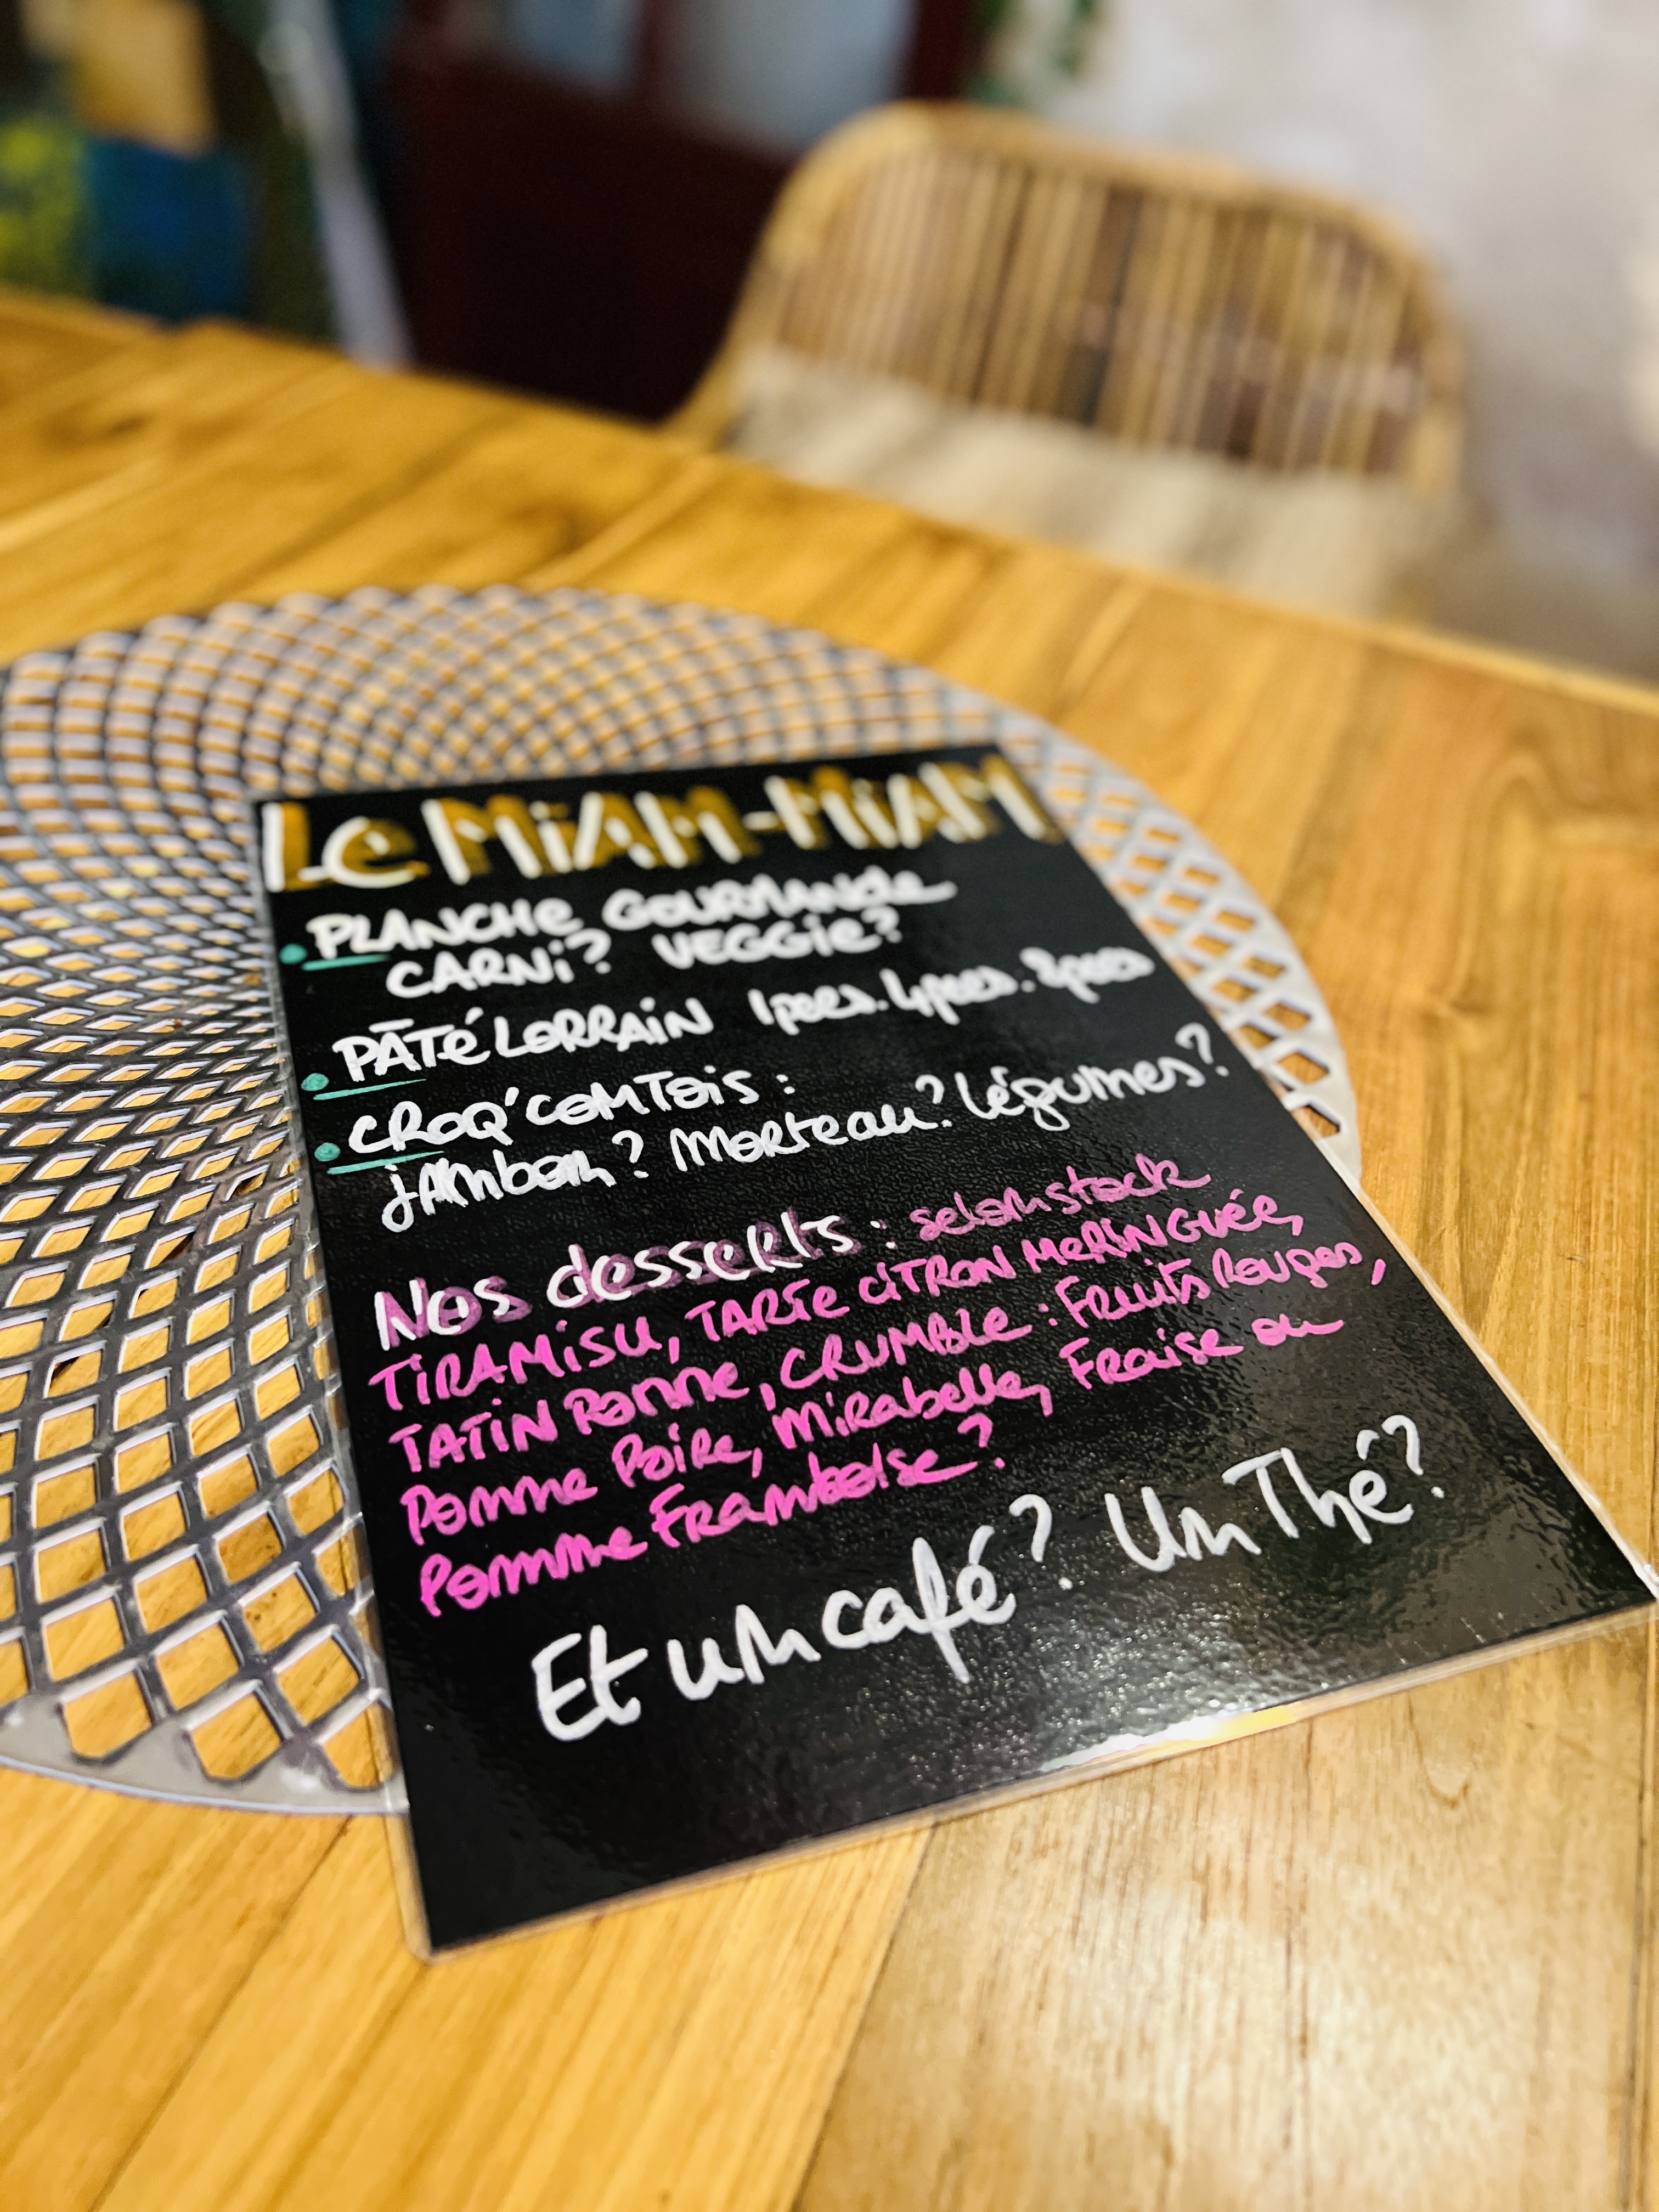 Le MiAM-MiAM
PLANCHE GOURMANDE
CARNi? VEGGie?
PÂTÉ LORRAIN 1pers. 4pers. 8pers
CROQ'COMTOIS :
JAMbon? Morteau? Légumes?
Nos desserts : selon stock
TiRAMiSU, TARTe CiTRON MeRiNGuée,
TATiN Pomme, CRUMBLe : FRuits Rouges,
Pomme Poire, MiRabelle, Fraise ou
Pomme Framboise?
Et un café? Un Thé?